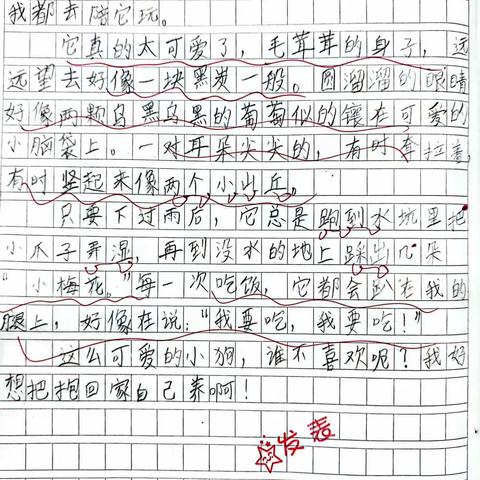 我都去陪它玩。
它真的太可爱了，毛茸茸的身子，远
远望去好像一块黑炭一般。圆溜溜的眼睛
好像两颗乌黑乌黑的葡萄似的镶在可爱的
小脑袋上。一对耳朵尖尖的，有时耷拉着，
有时竖起来像两个小出兵。
只要下过雨后，它总是跑到水坑里把
小爪子弄湿，再到没水的地上踩出几朵
“小梅花。”每一次吃饭，它都会趴在我的
腿上，好像在说：“我要吃，我要吃！”
这么可爱的小狗，谁不喜欢呢？我好
想把抱回家自己养啊！
发表